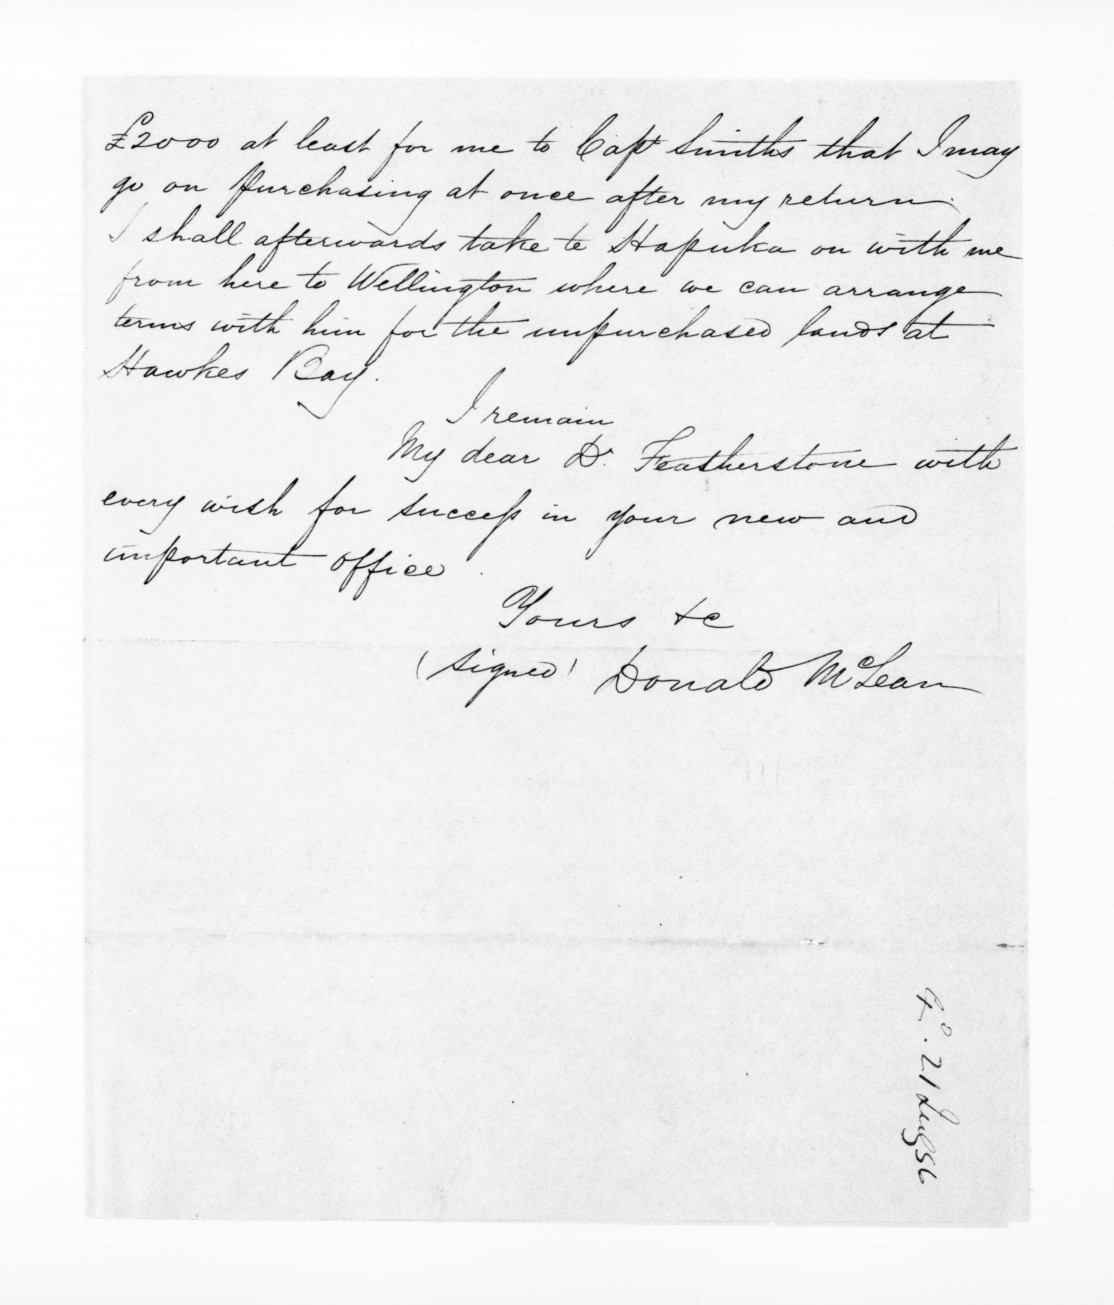 £2000 at least for me to Capt Smiths that I may
go on purchasing at once after my return.
I shall afterwards take te Hapuka on with me
from here to Wellington where we can arrange
terms with him for the unpurchased lands at
Hawkes Bay.
I remain
My dear Dr. Featherstone with
every wish for success in your new and
important office.
Yours &c
(signed) Donald McLean
21 Aug 56